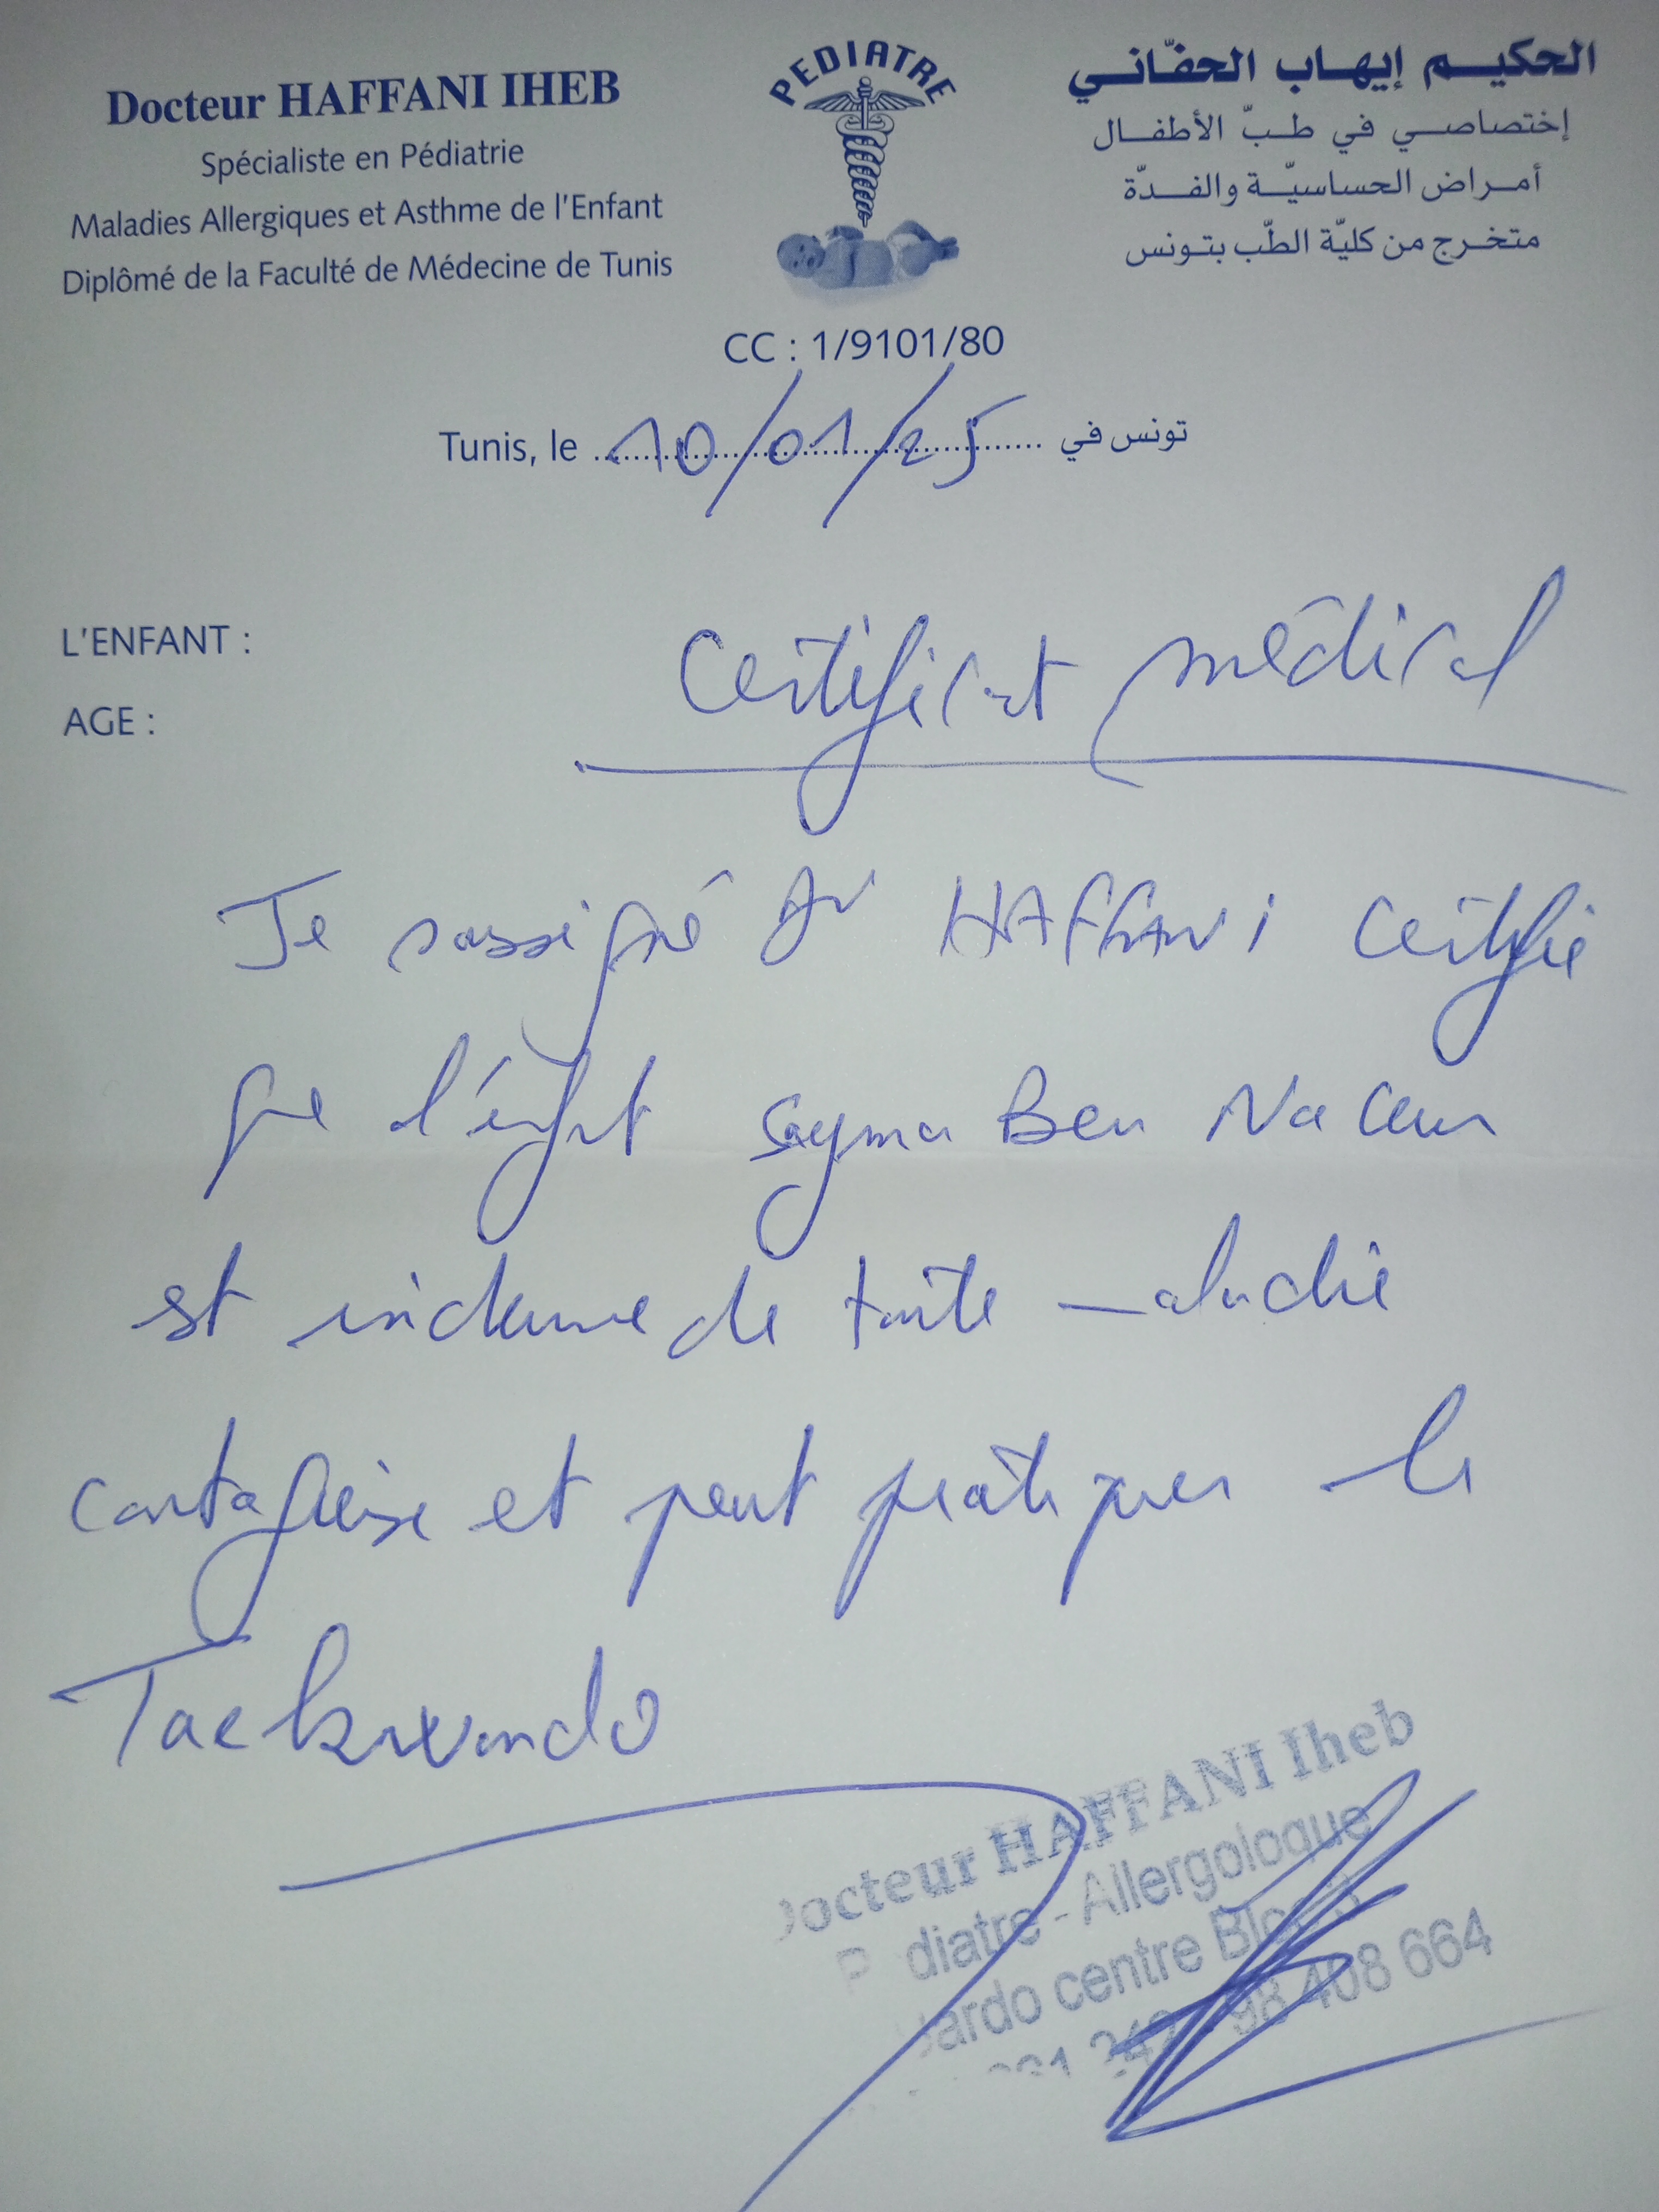 Docteur HAFFANI IHEB
Spécialiste en Pédiatrie
Maladies Allergiques et Asthme de l'Enfant
Diplômé de la Faculté de Médecine de Tunis
PEDIATRE
الحكيم إيهاب الحفّاني
إختصاصي في طبّ الأطفال
أمراض الحساسيّة والفدّة
متخرج من كليّة الطّب بتونس
CC : 1/9101/80
Tunis, le 10/01/25 تونس في
L'ENFANT :
AGE :
Certificat médical
Je soussigné Dr HAFFANI certifie
que l'enfant Seyma Ben Naceur
est indemne de toute maladie
contagieuse et peut pratiquer le
Taekwondo
Docteur HAFFANI Iheb
Pédiatre - Allergologue
Bardo centre Bloc
98 408 664